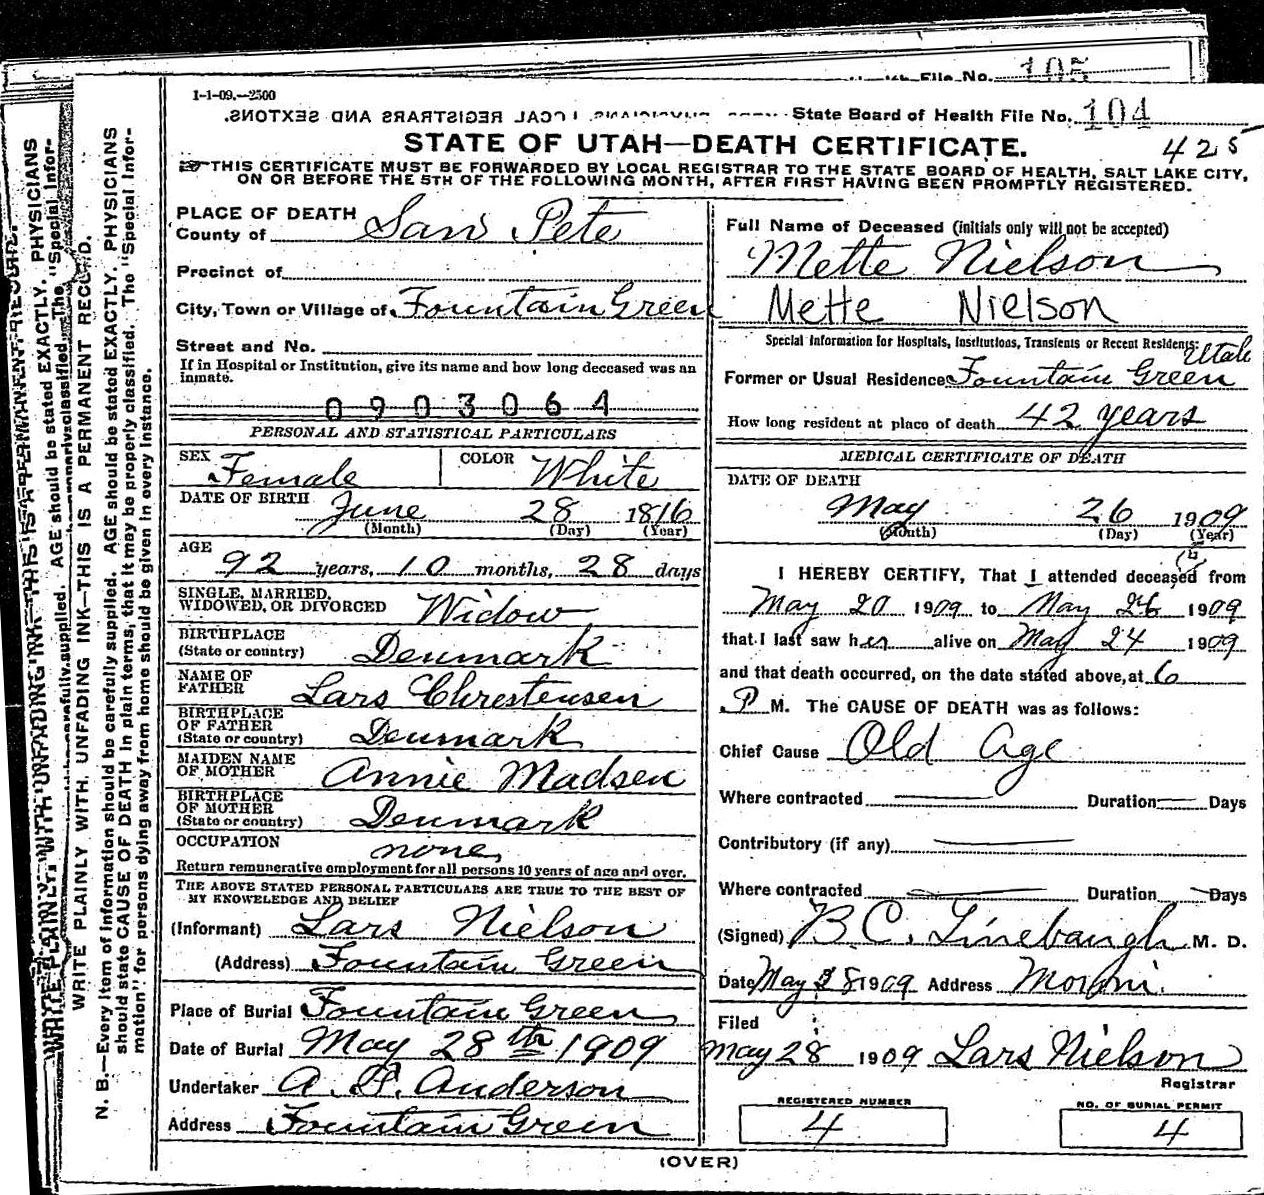 File No. 105
1-1-09.—2500
LOCAL REGISTRARS AND SEXTONS.
State Board of Health File No. 104
STATE OF UTAH—DEATH CERTIFICATE.
425
THIS CERTIFICATE MUST BE FORWARDED BY LOCAL REGISTRAR TO THE STATE BOARD OF HEALTH, SALT LAKE CITY,
ON OR BEFORE THE 5TH OF THE FOLLOWING MONTH, AFTER FIRST HAVING BEEN PROMPTLY REGISTERED.
PLACE OF DEATH
County of San Pete
Precinct of
City, Town or Village of Fountain Green
Street and No.
If in Hospital or Institution, give its name and how long deceased was an
inmate.
0903064
PERSONAL AND STATISTICAL PARTICULARS
SEX Female COLOR White
DATE OF BIRTH June 28 1816
(Month) (Day) (Year)
AGE
92 years, 10 months, 28 days
SINGLE, MARRIED,
WIDOWED, OR DIVORCED Widow
BIRTHPLACE
(State or country) Denmark
NAME OF
FATHER Lars Chrestensen
BIRTHPLACE
OF FATHER
(State or country) Denmark
MAIDEN NAME
OF MOTHER Annie Madsen
BIRTHPLACE
OF MOTHER
(State or country) Denmark
OCCUPATION none
Return remunerative employment for all persons 10 years of age and over.
THE ABOVE STATED PERSONAL PARTICULARS ARE TRUE TO THE BEST OF
MY KNOWLEDGE AND BELIEF
(Informant) Lars Nielson
(Address) Fountain Green
Place of Burial Fountain Green
Date of Burial May 28th 1909
Undertaker A. P. Anderson
Address Fountain Green
Full Name of Deceased (initials only will not be accepted)
Mette Nielson
Mette Nielson
Special Information for Hospitals, Institutions, Transients or Recent Residents:
Utah
Former or Usual Residence Fountain Green
How long resident at place of death 42 years
MEDICAL CERTIFICATE OF DEATH
DATE OF DEATH
May 26 1909
(Month) (Day) (Year)
I HEREBY CERTIFY, That I attended deceased from
May 20 1909 to May 26 1909
that I last saw her alive on May 24 1909
and that death occurred, on the date stated above, at 6
P M. The CAUSE OF DEATH was as follows:
Chief Cause Old Age
Where contracted Duration Days
Contributory (if any)
Where contracted Duration Days
(Signed) B. C. Linebaugh M. D.
Date May 28 1909 Address Moroni
Filed
May 28 1909 Lars Nielson
Registrar
REGISTERED NUMBER
4
NO. OF BURIAL PERMIT
4
(OVER)
WRITE PLAINLY WITH UNFADING INK—THIS IS A PERMANENT RECORD.
N. B.—Every item of information should be carefully supplied. AGE should be stated EXACTLY. PHYSICIANS
should state CAUSE OF DEATH in plain terms, that it may be properly classified. The "Special Infor-
mation" for persons dying away from home should be given in every instance.